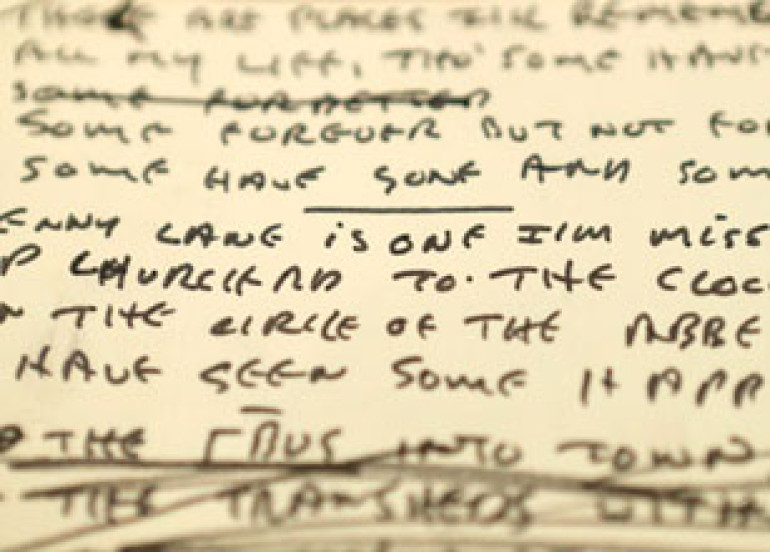 THERE ARE PLACES I'LL REMEMBE
ALL MY LIFE, THO' SOME HAVE
SOME FOR BETTER
SOME FOREVER BUT NOT FO
SOME HAVE GONE AND SOM
ENNY LANE IS ONE I'M MISS
P CHURCH AND TO THE CLOC
N THE CIRCLE OF THE ABBE
HAVE SEEN SOME HAPP
THE BUS INTO TOWN
THE TRAMSHEDS WITH